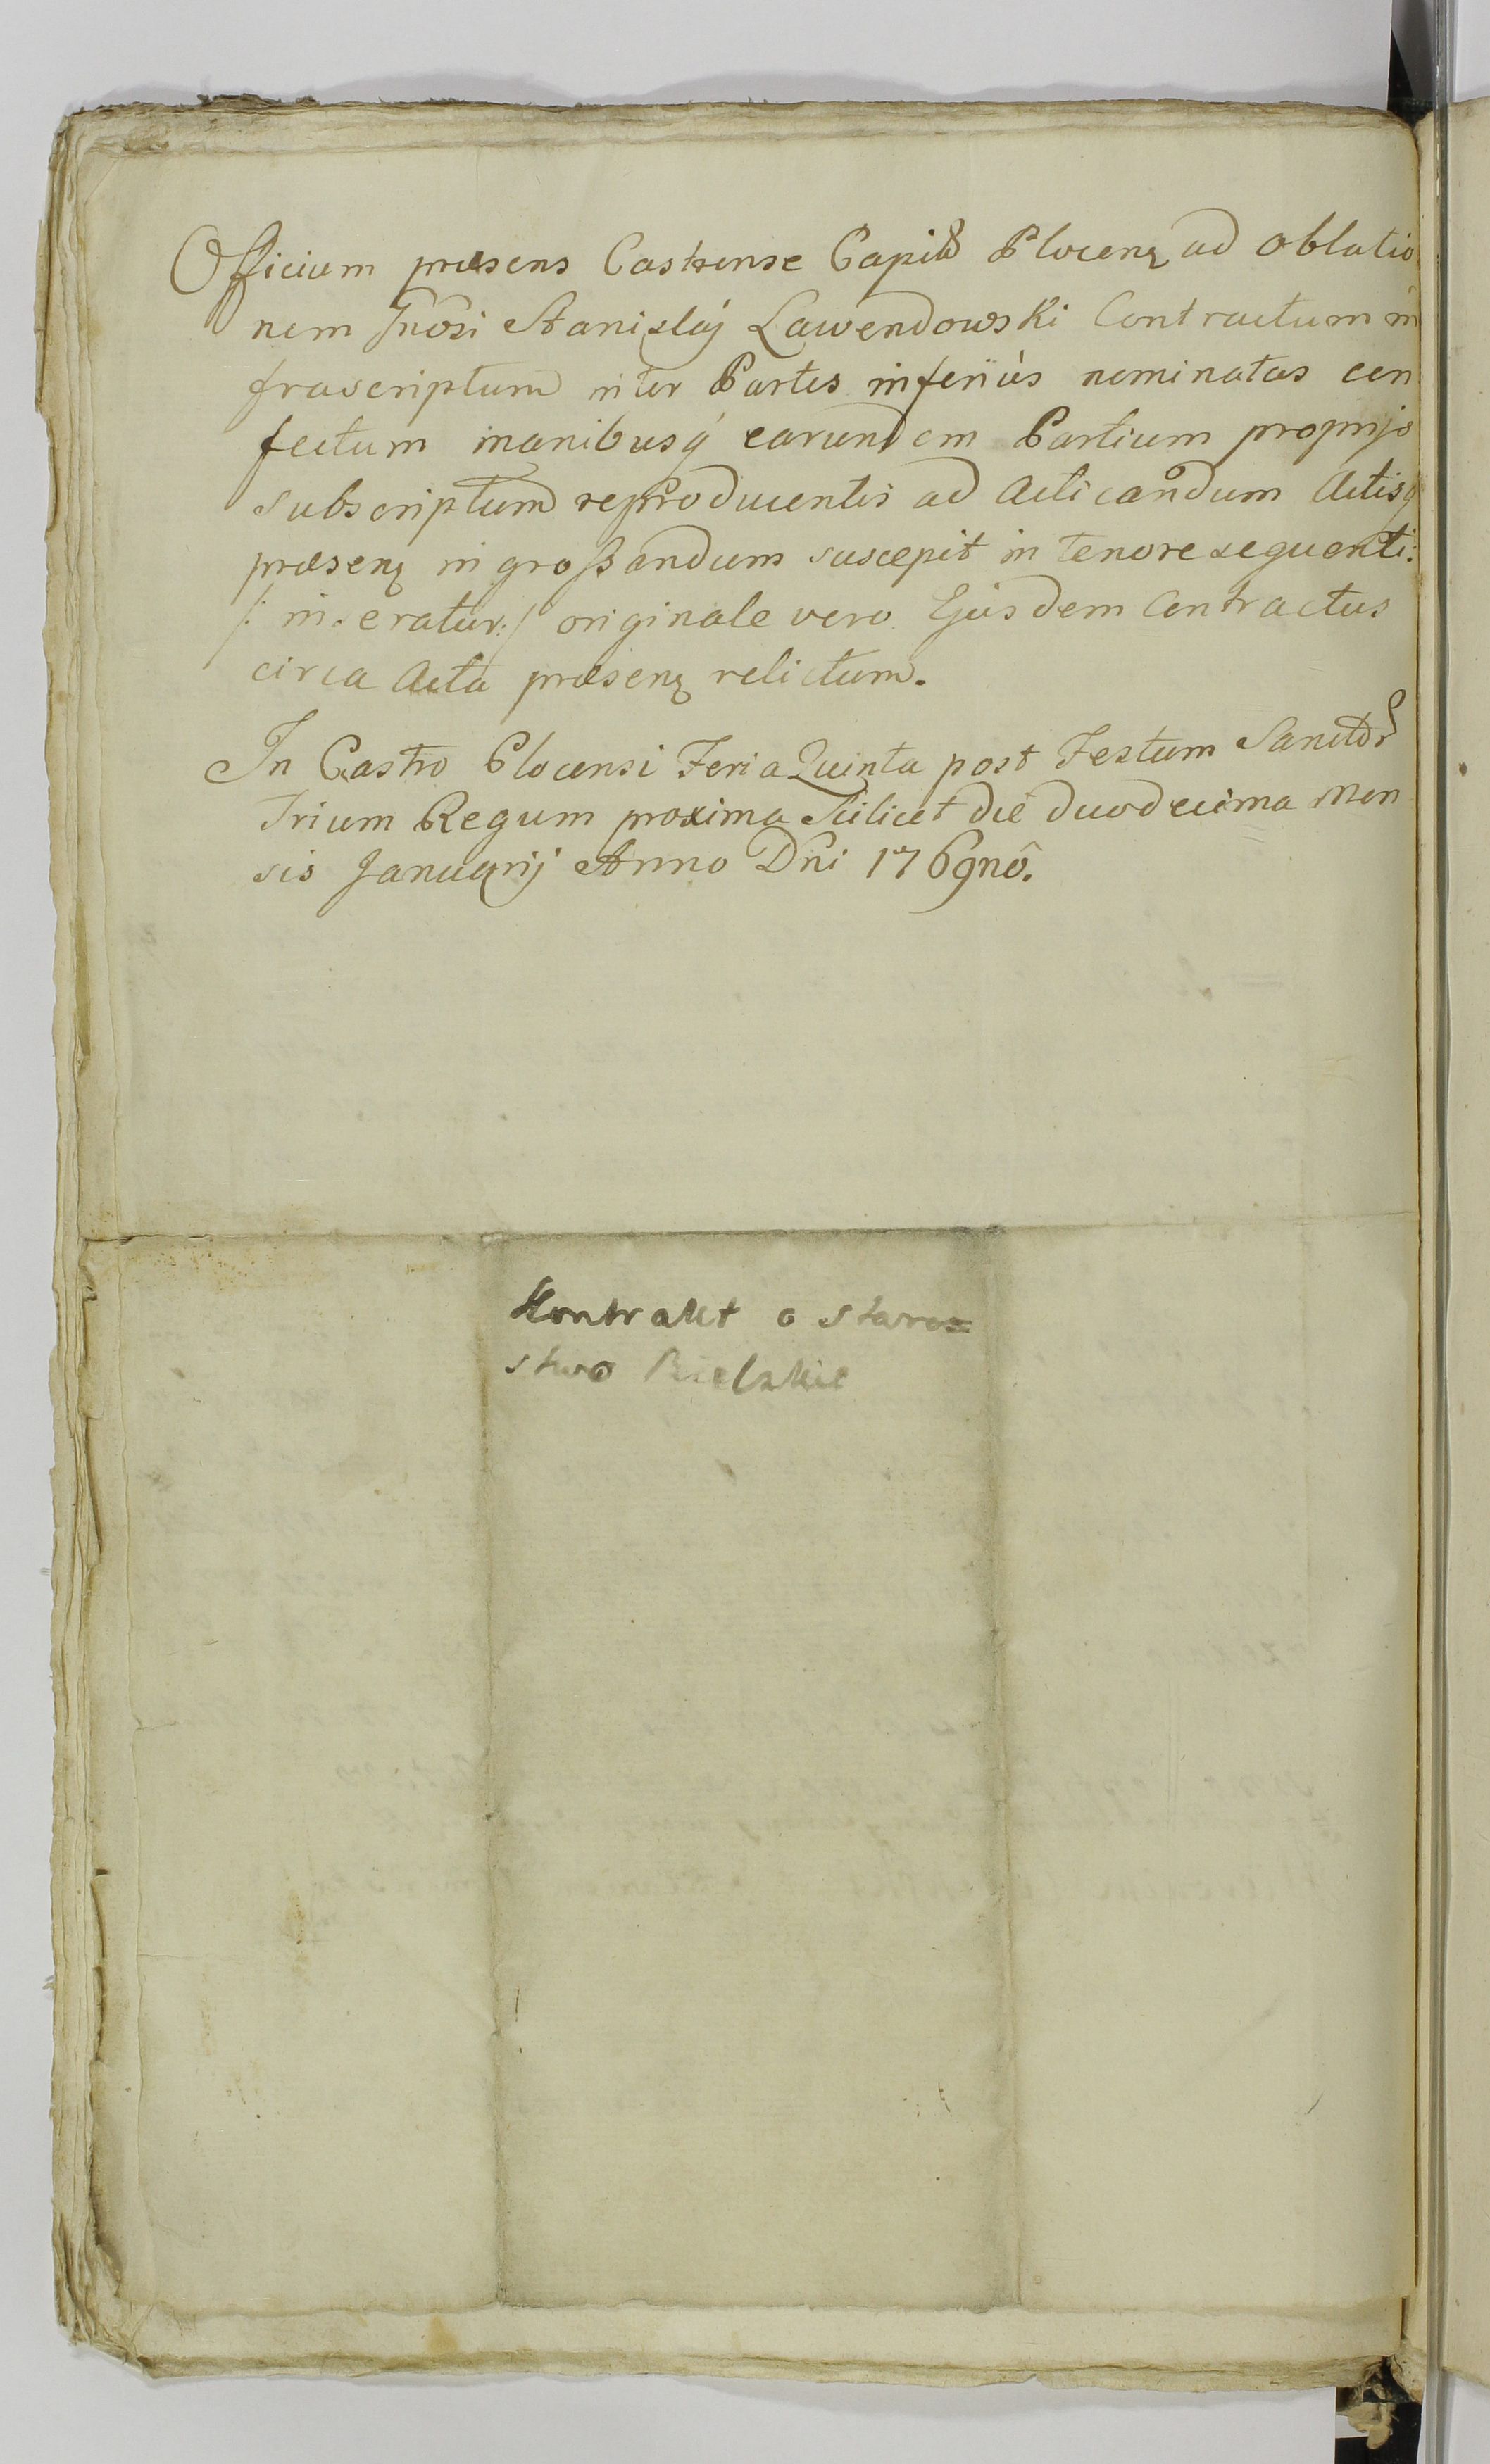 Officium præsens Castrense Capit Plocen ad oblatio
nem Gnosi Stanislaj Lawendowski Contractum in
frascriptum inter Partes inferiùs nominatas con
fectum manibusq earundem Partium proprijs
subscriptum reproducentis ad acticandum Actisq
præsen ingroßandum suscepit in tenore sequenti:
/: inseratur :/ originale vero Ejusdem Contractus
circa Acta præsen relictum.
In Castro Plocensi Feria Quinta post Festum Sanctor
Trium Regum proxima Scilicet die duodecima Men
sis Januarij Anno Dni 1769nô.
Kontrakt o staro=
stwo Bielskie